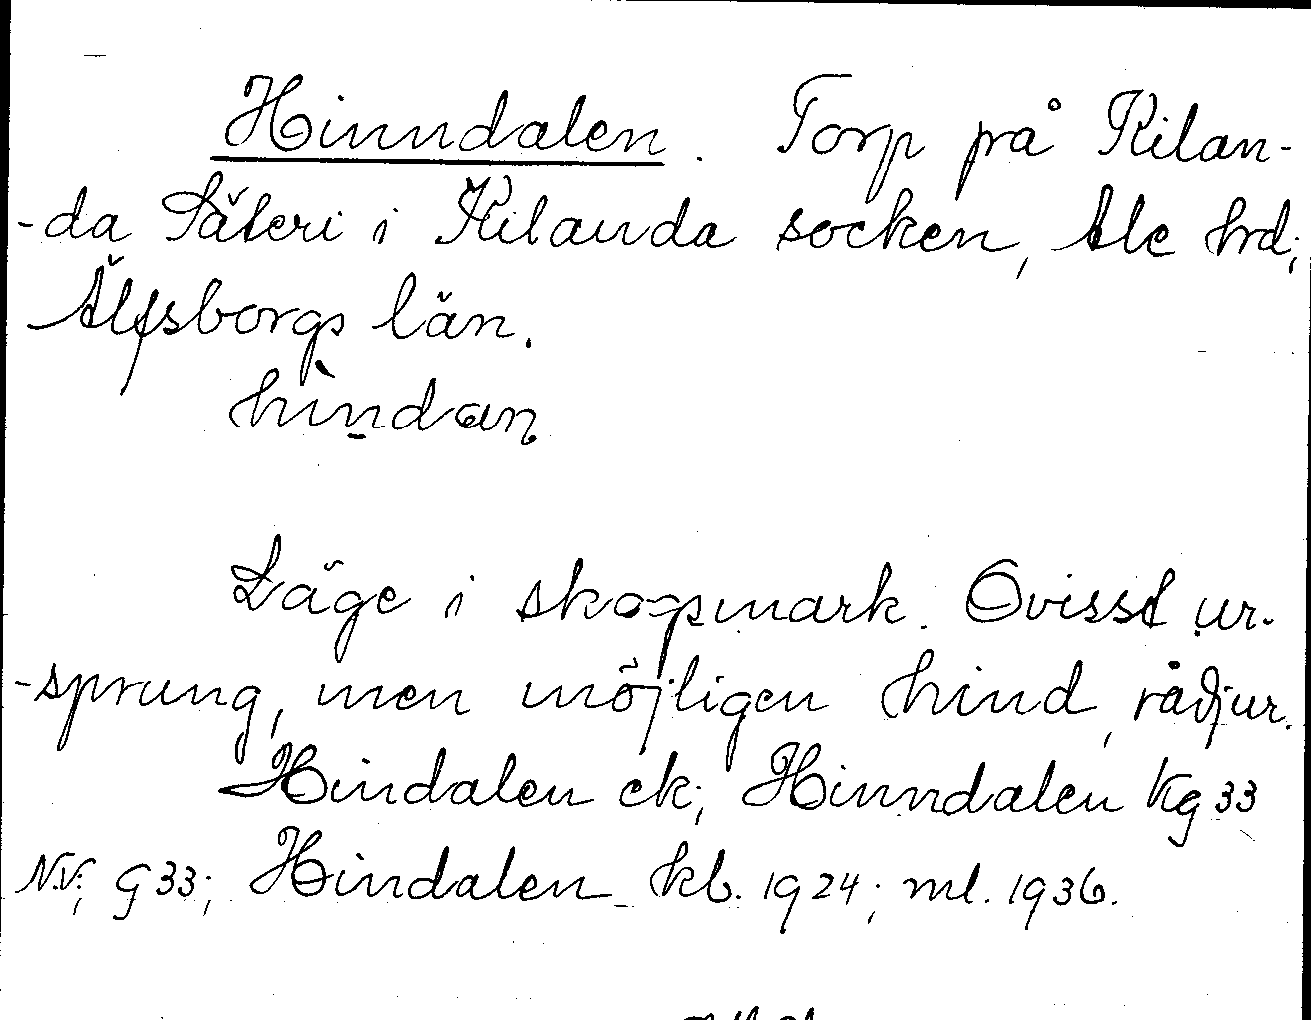 Hinndalen. Torp på Kilan-
-da Säteri i Kilanda socken, Ale hrd;
Älfsborgs län.
hìndan
Läge i skogsmark. Ovisst ur-
-sprung, men möjligen hind, rådjur.
Hindalen ek; Hinndalen Kg 33
N.V; G 33; Hindalen kb. 1924; ml. 1936.